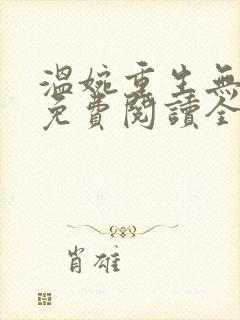 溫婉重生無
免費閱讀全
肖雄